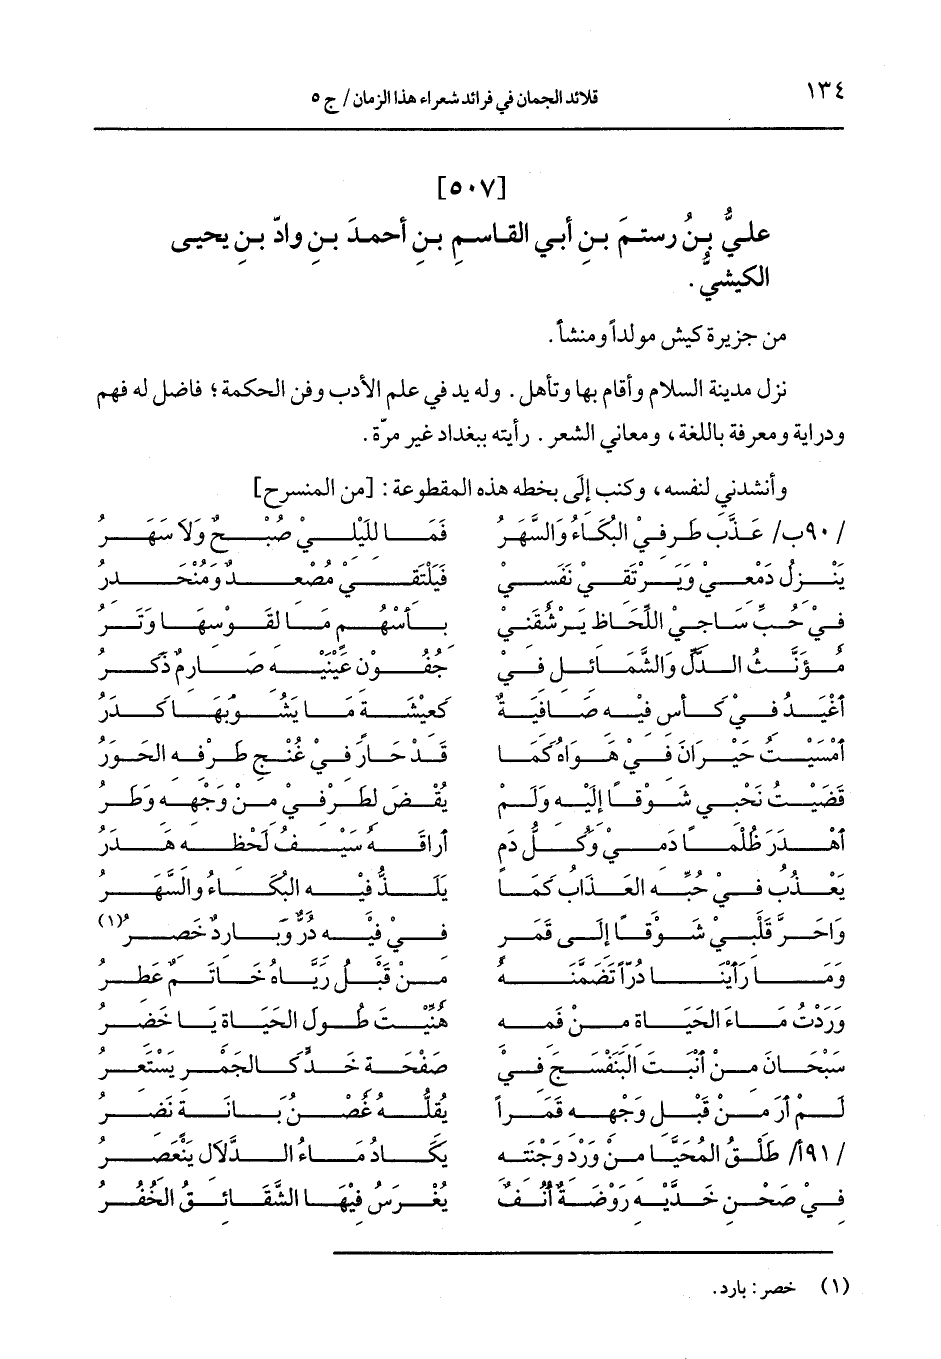 ١٣٤ قلائد الجمان في فرائد شعراء هذا الزمان/ ج ٥
[٥٠٧]
عليُّ بنُ رستمَ بنِ أبي القاسمِ بنِ أحمدَ بنِ وادّ بنِ يحيى
الكيشيُّ.
من جزيرة كيش مولداً ومنشأ.
نزل مدينة السلام وأقام بها وتأهل. وله يد في علم الأدب وفن الحكمة؛ فاضل له فهم
ودراية ومعرفة باللغة، ومعاني الشعر. رأيته ببغداد غير مرّة.
وأنشدني لنفسه، وكتب إلَي بخطه هذه المقطوعة: [من المنسرح]
/٩٠ب/ عَذَّبَ طَرفيْ البُكَاءُ وَالسَّهَرُ فَمَا لِلَيْلِيْ صُبْحٌ وَلاَ سَهَرُ
يَنْزِلُ دَمْعِيْ وَيَرْتَقِيْ نَفَسِيْ فَيَلْتَقِيْ مُصْعِدٌ وَمُنْحَدِرُ
فِيْ حُبِّ سَاجِيْ اللِّحَاظِ يَرْشُقُنِيْ بِأَسْهُمٍ مَا لِقَوْسِهَا وَتَرُ
مُؤَنَّثُ الدَّلِّ وَالشَّمَائِلِ فِيْ جُفُونِ عَيْنَيْهِ صَارِمٌ ذَكَرُ
أَغْيَدُ فِيْ كَأْسِ فِيْهِ صَافِيَةٌ كَعِيْشَةٍ مَا يَشُوبُهَا كَدَرُ
أَمْسَيْتُ حَيْرَانَ فِيْ هَوَاهُ كَمَا قَدْ حَارَ فِيْ غُنْجِ طَرْفِهِ الحَوَرُ
قَضَيْتُ نَحْبِي شَوْقاً إِلَيْهِ وَلَمْ يُقْضَ لِطَرْفِيْ مِنْ وَجْهِهِ وَطَرُ
أَهْدَرَ ظُلْماً دَمِيْ وَكُلُّ دَمٍ أَرَاقَهُ سَيْفُ لَحْظِهِ هَدَرُ
يَعْذُبُ فِيْ حُبِّهِ العَذَابُ كَمَا يَلَذُّ فِيْهِ البُكَاءُ وَالسَّهَرُ
وَاحَرَّ قَلْبِيْ شَوْقاً إِلَى قَمَرٍ فِيْ فِيْهِ دُرٌّ وَبَارِدٌ خَصِرُ(١)
وَمَا رَأَيْنَا دُرّاً تَضَمَّنَهُ مِنْ قَبْلِ رَيَّاهُ خَاتَمٌ عَطِرُ
وَرَدْتُ مَاءَ الحَيَاةِ مِنْ فَمِهِ هُنِّيْتَ طُولَ الحَيَاةِ يَا خَضِرُ
سَبْحَانَ مَنْ أَنْبَتَ البَنَفْسَجَ فِيْ صَفْحَةِ خَدٍّ كَالجَمْرِ يَسْتَعِرُ
لَمْ أَرَ مِنْ قَبْلِ وَجْهِهِ قَمَراً يُقِلُّهُ غُصْنُ بَانَةٍ نَضِرُ
/٩١أ/ طَلْقُ المُحَيَّا مِنْ وَرْدِ وَجْنَتِهِ يَكَادُ مَاءُ الدَّلالِ يَنْعَصِرُ
فِيْ صَحْنِ خَدَّيْهِ رَوْضَةٌ أُنُفٌ يُغْرَسُ فِيْهَا الشَّقَائِقُ الخُفُرُ
(١) خصر: بارد.